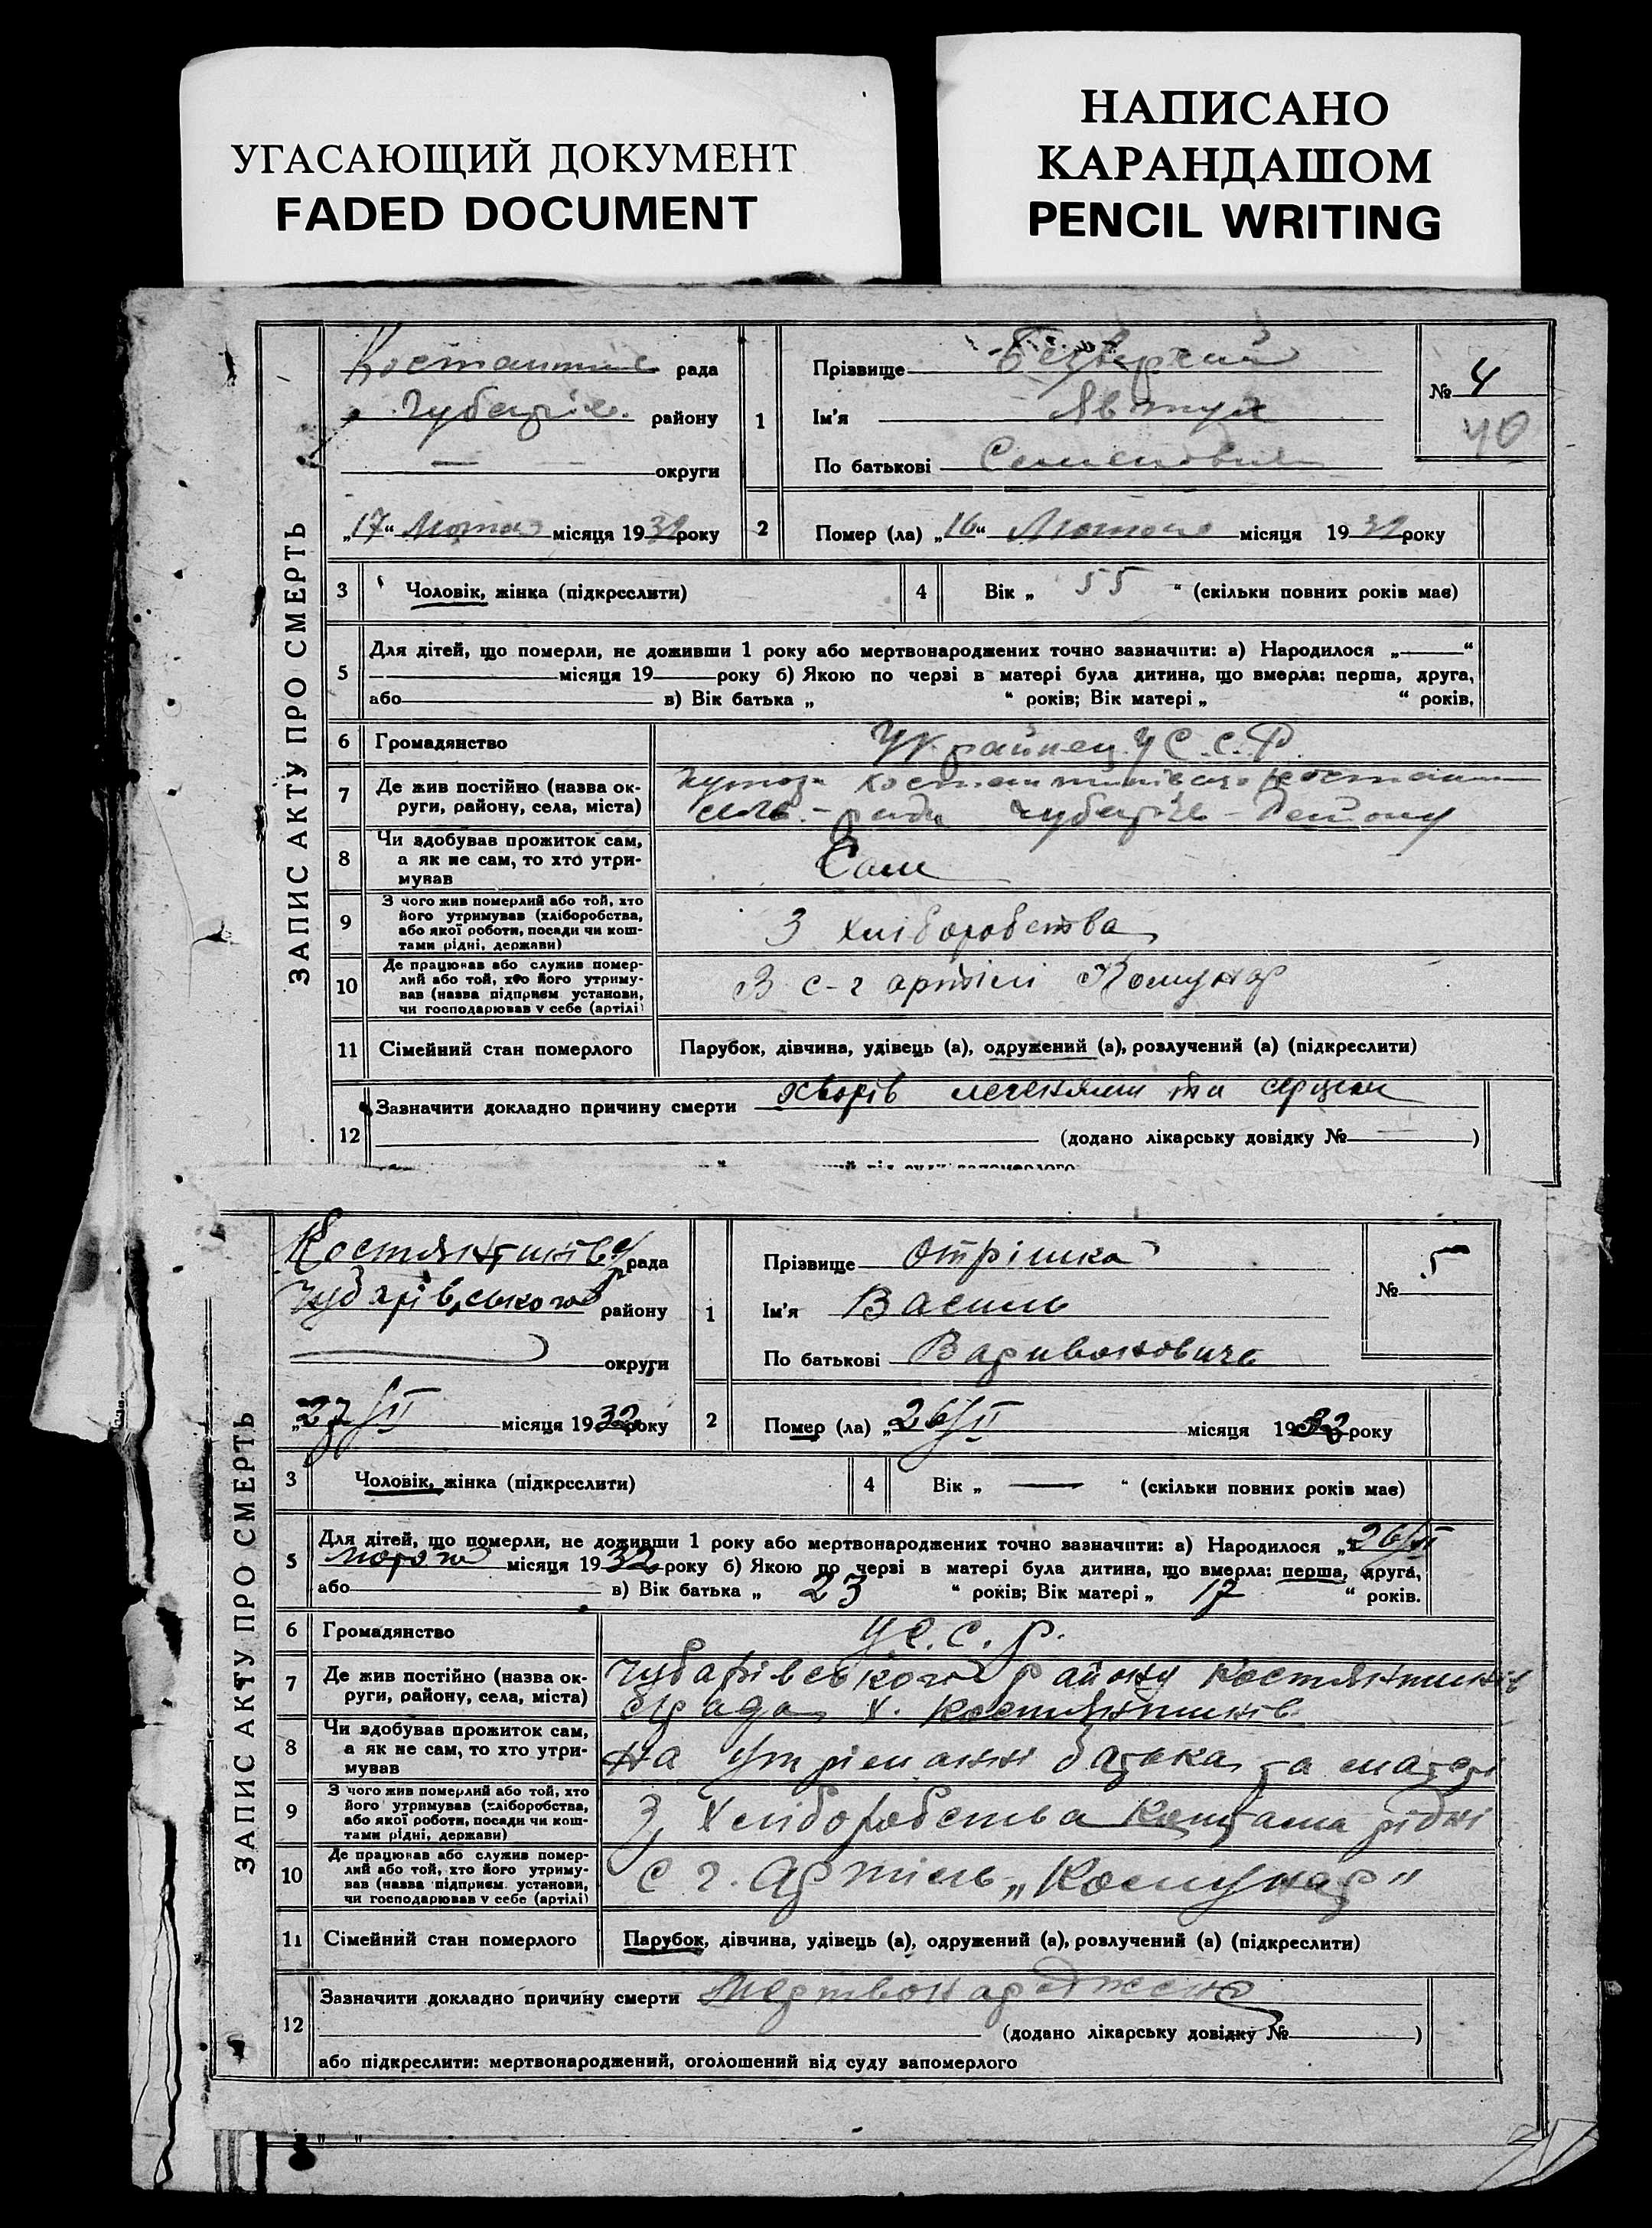 УГАСАЮЩИЙ ДОКУМЕНТ
FADED DOCUMENT
НАПИСАНО
КАРАНДАШОМ
PENCIL WRITING
ЗАПИС АКТУ ПРО СМЕРТЬ
рада
району
— — округи
„17“ Лютаго місяця 1932 року
1
Прізвище
Ім'я Явтух
По батькові Семенович
№ 4
40
2
Помер (ла) „16“ Лютого місяця 1932 року
3 Чоловік, жінка (підкреслити)
4 Вік „ 55 “ (скільки повних років має)
5
Для дітей, що померли, не доживши 1 року або мертвонароджених точно зазначити: а) Народилося „ — “
місяця 19 року б) Якою по черзі в матері була дитина, що вмерла: перша, друга,
або в) Вік батька „ “ років; Вік матері „ “ років.
6 Громадянство Українец У С. С. Р.
7 Де жив постійно (назва ок-
руги, району, села, міста)
8 Чи здобував прожиток сам,
а як не сам, то хто утри-
мував
Сам
9 З чого жив померлий або той, хто
його утримував (хліборобства,
або якої роботи, посади чи кош-
тами рідні, держави)
З хліборобства
10 Де працював або служив помер-
лий або той, хто його утриму-
вав (назва підприєм установи,
чи господарював у себе (артілі)
В с-г артілі Комунар
11 Сімейний стан померлого Парубок, дівчина, удівець (а), одружений (а), розлучений (а) (підкреслити)
12
Зазначити докладно причину смерти хворів легенями та серцем
(додано лікарську довідку № — )
ЗАПИС АКТУ ПРО СМЕРТЬ
Костянтинів рада
Чубарівського району
округи
„27/II місяця 1932 року
1
Прізвище Отрішка
Ім'я Василь
По батькові Варивонович
№ 5
2
Помер (ла) „26/II місяця 1932 року
3 Чоловік, жінка (підкреслити)
4 Вік „ — “ (скільки повних років має)
5
Для дітей, що померли, не доживши 1 року або мертвонароджених точно зазначити: а) Народилося „26/II
лютого місяця 1932 року б) Якою по черзі в матері була дитина, що вмерла: перша, друга,
або в) Вік батька „ 23 “ років; Вік матері „ 17 “ років.
6 Громадянство У С. С. Р.
7 Де жив постійно (назва ок-
руги, району, села, міста)
Чубарівського району Костянтинів
с/рада х. Костянтинів
8 Чи здобував прожиток сам,
а як не сам, то хто утри-
мував
На утріманні батька та матері
9 З чого жив померлий або той, хто
його утримував (хліборобства,
або якої роботи, посади чи кош-
тами рідні, держави)
З Хліборобства рідні
10 Де працював або служив помер-
лий або той, хто його утриму-
вав (назва підприєм. установи,
чи господарював у себе (артілі)
С г. Артіль „Комунар"
11 Сімейний стан померлого Парубок, дівчина, удівець (а), одружений (а), розлучений (а) (підкреслити)
12
Зазначити докладно причину смерти Мертвонароджене
(додано лікарську довідку № )
або підкреслити: мертвонароджений, оголошений від суду запомерлого